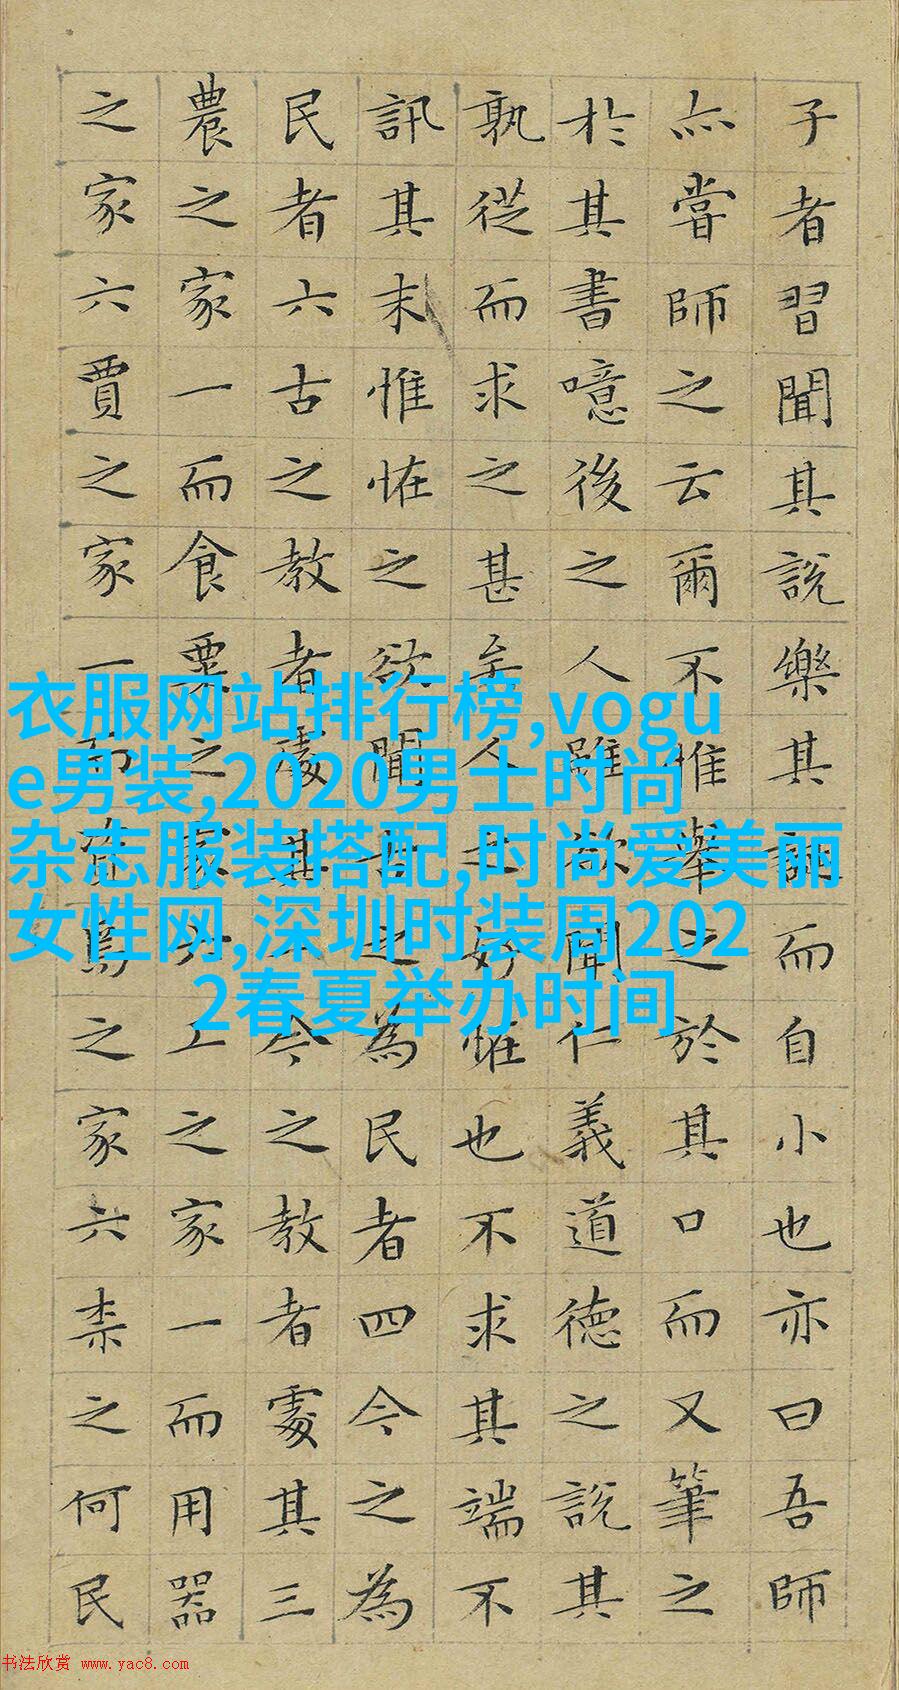 子者習聞其說樂其誕而自小也亦曰吾師
亦嘗師之云爾不惟舉之於其口而又筆之
於其書噫後之人雖欲聞仁義道德之說其
孰從而求之甚矣人之好恠也不求其端不
訊其末惟恠之欲聞古之為民者四今之為
民者六古之教者處其一今之教者處其三
農之家一而食粟之家六工之家一而用器
之家六賈之家一而資焉之家六柰之何民
衣服网站排行榜,vogu
e男装,2020男士时尚
杂志服装搭配,时尚爱美丽
女性网,深圳时装周202
2春夏举办时间
书法欣赏 www.yac8.com